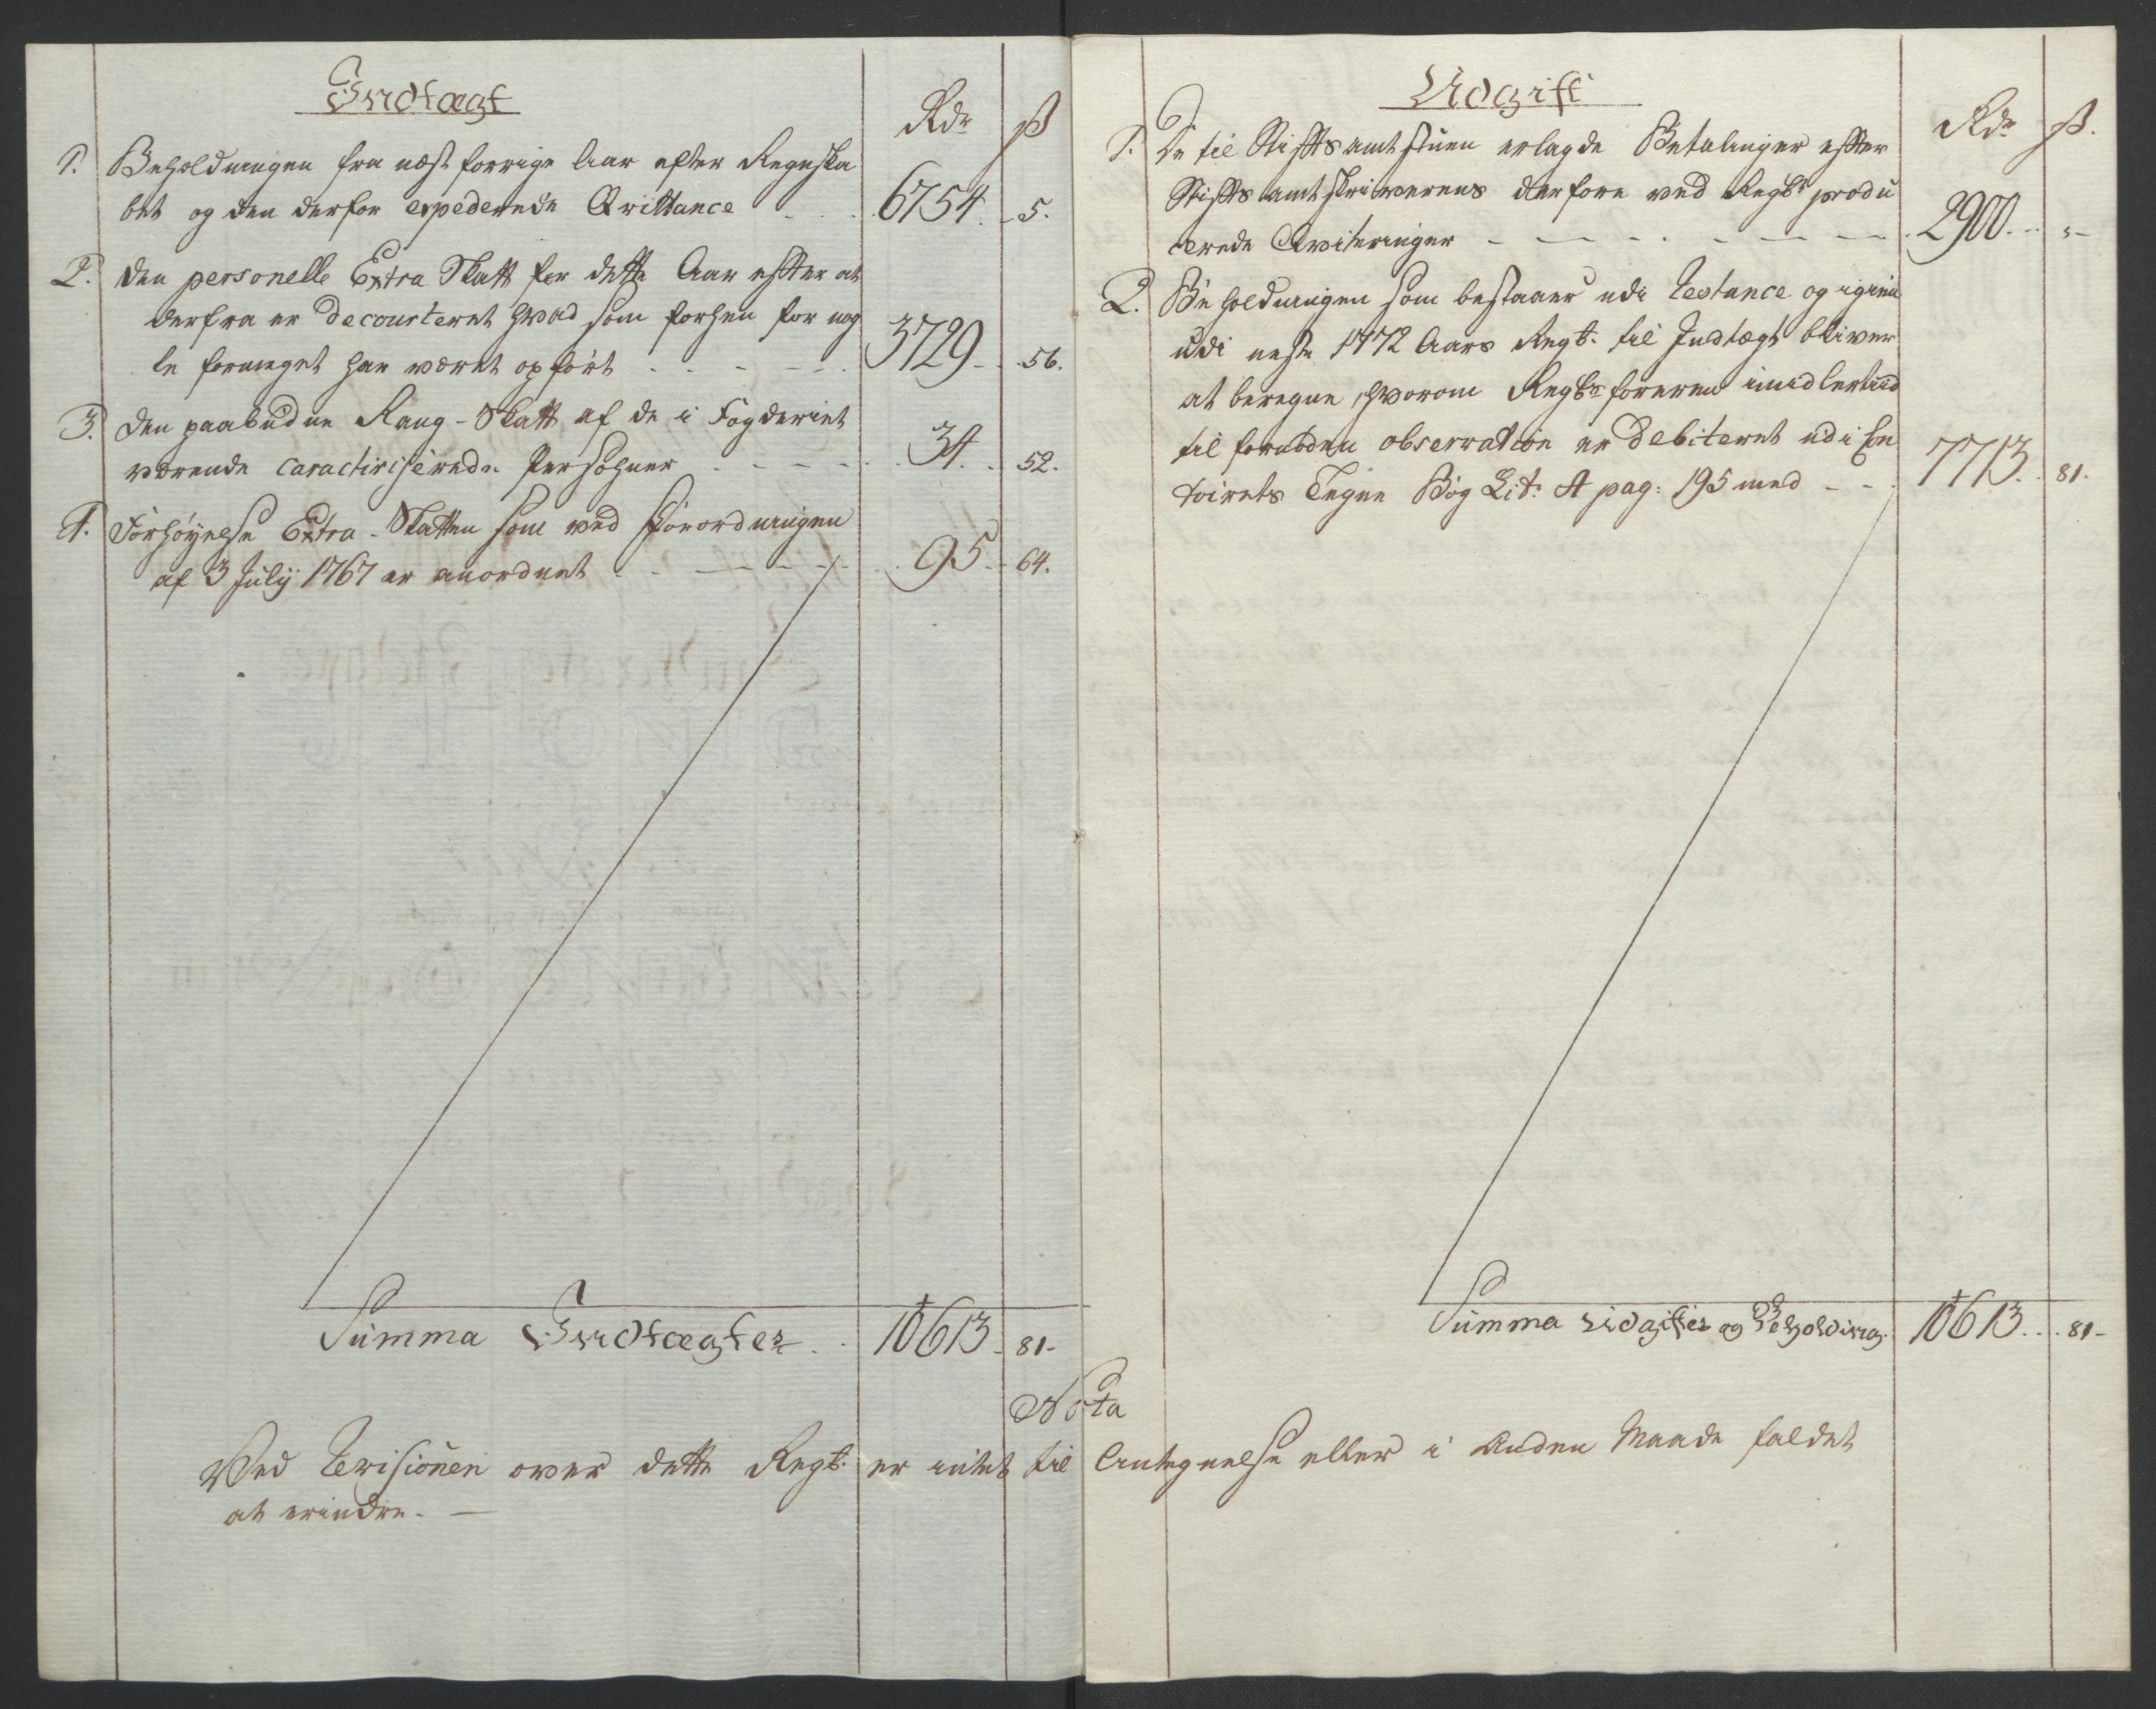 Indtægt
Rdr ß
1. Beholdningen fra næst forrige Aar efter Regnska
bet og den derfor expederede Qvittance - - - 6754. - 5.
2. Den personelle Extra Skatt for dette Aar efter at
derfra er decourteret hvad som forhen for nog
le formeget har været opført - - - - - 3729 - - 56.
3. Den paabudne Rang-Skatt af de i Fogderiet
værende caractiriserede Persohner - - - - - 34. - 52.
4. Forhøyelse Extra-Skatten som ved Forordningen
af 3 July 1767 er anordnet - - - - - 95 - - 64.
Summa Indtægter - - 10613 - 81 -
Udgift
Rdr ß.
1. De til Stiftsamtstuen erlagde Betalinger efter
Stiftsamtskriverens derfore ved Regbt produ
cerede Qviteringer - - - - - - - - 2900. - - „ -
2. Beholdningen som bestaaer udi Restance og igien
udi neste 1772 Aars Regb: til Indtægt bliver
at beregne, hvorom Regbsføreren imidlertiid
til fornøden observation er debiteret udi Con
toirets Tegne Bog Lit: A pag: 195 med - - - 7713. - 81.
Summa Udgifter og Beholdning. 10613. - - 81 -
Nota
Ved Revisionen over dette Regb: er intet til Antegnelse eller i anden Maade faldet
at erindre. -